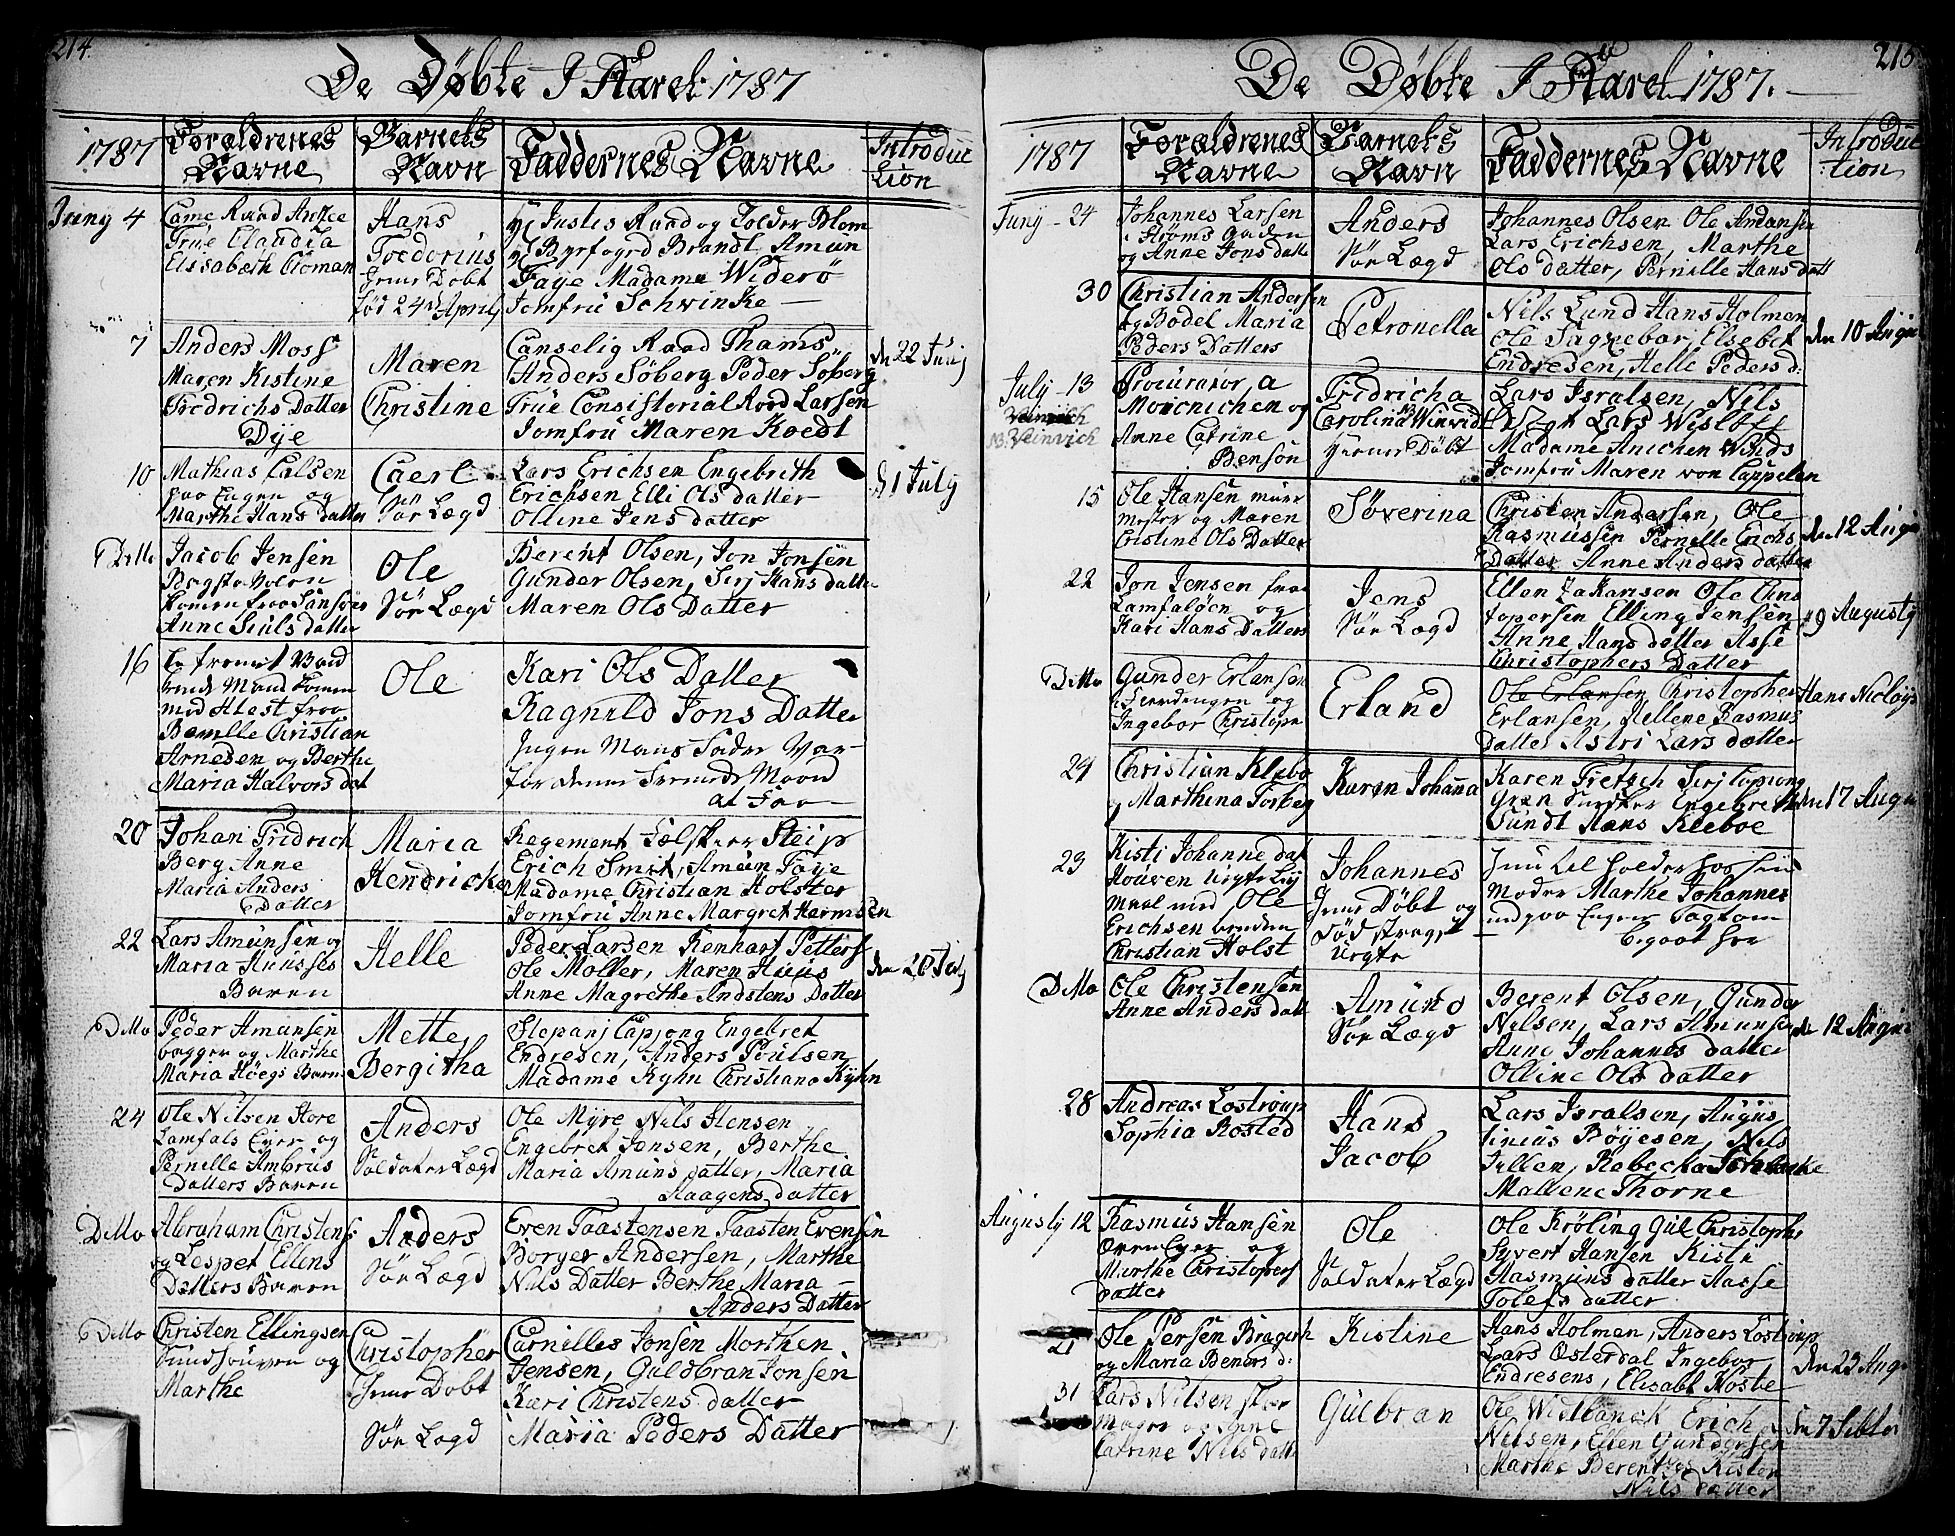 214.
De Døbte I Aaret 1787
1787
Forældrenes Navne
Barnets Navn
Faddernes Navne
Introduc tion
Juny 4
Came Raad Anker
Frue Claudia
Elisabeth
Hans
Fredorius
hemme Døbt
fød 24de April
Justis Raad og Tolder Blom
Byefogd Brandt Amun
Faye Madame Widerø
Jomfru Schwinke
7
Anders Moss
Maren Kistine
Fredrichs Datter
Dye
Maren
Christine
Canselig Raad Thams
Anders Søberg Peder Søberg
Frue Consistorial Raad Larsen
Jomfru Maren Koedt
den 22 Junj
10
Mathias Calsen
paa Engen og
Marthe Hans datter
Caerl
Sør Lægd
Lars Erichsen Engebrith
Erichsen Elli Ols datter
Olline Jens datter
d 1 July
Ditto
Jacob Jensen
Anne datter
Ole
Sør Lægd
Berent Olsen, Jon Jonsen
Gunder Olsen, Sirj Hans datter
Maren Ols Datter
16
et fremet Barn
med Hest fra
Christian
Arnesen og Berthe
Maria Halvors dat
Ole
Kari Ols Datter
Ragnild Jons Datter
Ingen Mans Fader Var
at Faa
20
Johan Fridrich
Berg Anne
Maria Anders
Datter
Maria
Hendricke
Regement Felskier Steip
Erich Smit, Amun Faye
Madame Christian Holster
Jomfru Anne Margret Harmsen
22
Lars Amunsen og
Maria Huuses
Baren
Helle
Peder Larsen Renhart Petters
Ole Møller, Maren Huus
Anne Magrethe Andstens Datter
den 20 July
Ditto
Peder Amunsen
bagger og Marthe
Maria Høegs Barn
Mette
Bergitha
Stepanj Capjong Engebret
Endresen, Anders Poulsen
Madame Kyhn Christiana Kyhn
24
Ole Nilsen Store
Lamfals Eyer og
Pernille Ambrius
Datters Baren
Anders
Soldater Lægd
Ole Myre Nils Hensen
Engebret Jensen, Berthe
Maria Amuns datter, Maria
Haagens datter
Ditto
Abraham Christens
og Lespet Ellens
Datters Baren
Anders
Sør Lægd
Even Taastensen Taasten Evensen
Borger Andersen, Marthe
Nils Datter Berthe Maria
Anders Datter
Ditto
Christen Ellingsen
Sundhouven og
Marthe
Christopher
hemme Døbt
Sør Lægd
Carnilles Jonsen Morthen
Jensen, Guldbran Jonsen
Kari Christens datter
Maria Peders Datter
215
De Døbte I Aaret 1787.
1787
Forældrenes Navne
Barnets Navn
Faddernes Navne
Introduc tion
Juny 24
Johannes Larsen
i Strøms gaden
og Anne Jons datte
Anders
Sør Lægd
Johannes Olsen Ole Amdansen
Lars Erichsen, Marthe
Ols datter, Pernille Hans datt
30
Christian Andersen
og Bodel Maria
Peders Datters
Petronella
Nils Lund Hans Holmen
Ole Elsebet
Endresen, Helle Peders d:
den 10 Augu
July 13
Procurator, a
Møicnichen og
Anne Catrine
Benson
Fridricha
Carolina Winvid
hiemme Døbt
Lars Isralsen, Nils
Lars Wisløff
Madame Anichen Winds
Jomfru Maren von Cappelen
13. Veinvich
15
Ole Hansen muur
mester og Maren
Cristine Ols Datter
Søverina
Christen Andersen, Ole
Rasmussen Pernille Erichs
Datter Anne Anders datter
den 12 Augu
22
Jon Jensen fra
Lamfaløen og
Kari Hans Datters
Jens
Sør Lægd
Ellen Jakansen Ole Chris
topersen Elling Jensen
Anne Hans datter Asse
Christophers Datter
19 Augusty
Ditto
Gunder Erlansen
og
Ingebor Christoph
Erland
Ole Erlansen Christopher
Erlansen, Hellene Rasmus
Datter Astri Lars datter
Hans Nicloys
29
Christian Klebo
og Marthina Forberg
Karen Johanna
Karen Fretzch Sirj Capjong
Engebrethe
Sundt Hans Kleboe
den 17 Augu
23
Kisti Johanne dat
Houven Ole
Erichsen
Christian Holst
Johannes
hemme Døbt og
Død strags
Moder Marthe Johannes
Ditto
Ole Christensen
Anne Anders datt
Amund
Sør Lægd
Berent Olsen, Gunder
Nilsen, Lars Amunsen
Anne Johannes datter
Olline Ols datter
de 12 Augu
28
Andreas Lostrup
Sophia Rosted
Hans
Jacob
Lars Isralsen, Augus
tinius Bøyesen, Nils
Jullen, Rebecka
Mallene Thorne
Augusty 12
Rasmus Hansen
og
Marthe Christopers
datter
Ole
Soldater Lægd
Ole Krøling Gul Christophe
Syvert Hansen Kisti
Rasmuns datter Aasse
Tolefs datter
21
Ole Persen Bragerh
og Maria Benders d:
Kistine
Hans Holmen, Anders Lostrup
Lars Osterdal Ingebor
Endresens, Elisabt Hoste
den 23 Aug
31
Lars Nilsen Skoe
mager og Anne
Catrine Nils datt
Gulbran
Ole Widbanck Erich
Nilsen, Ellen Gundersen
Marthe Berentzes Kisten
Nils datter
den 7 Sebter